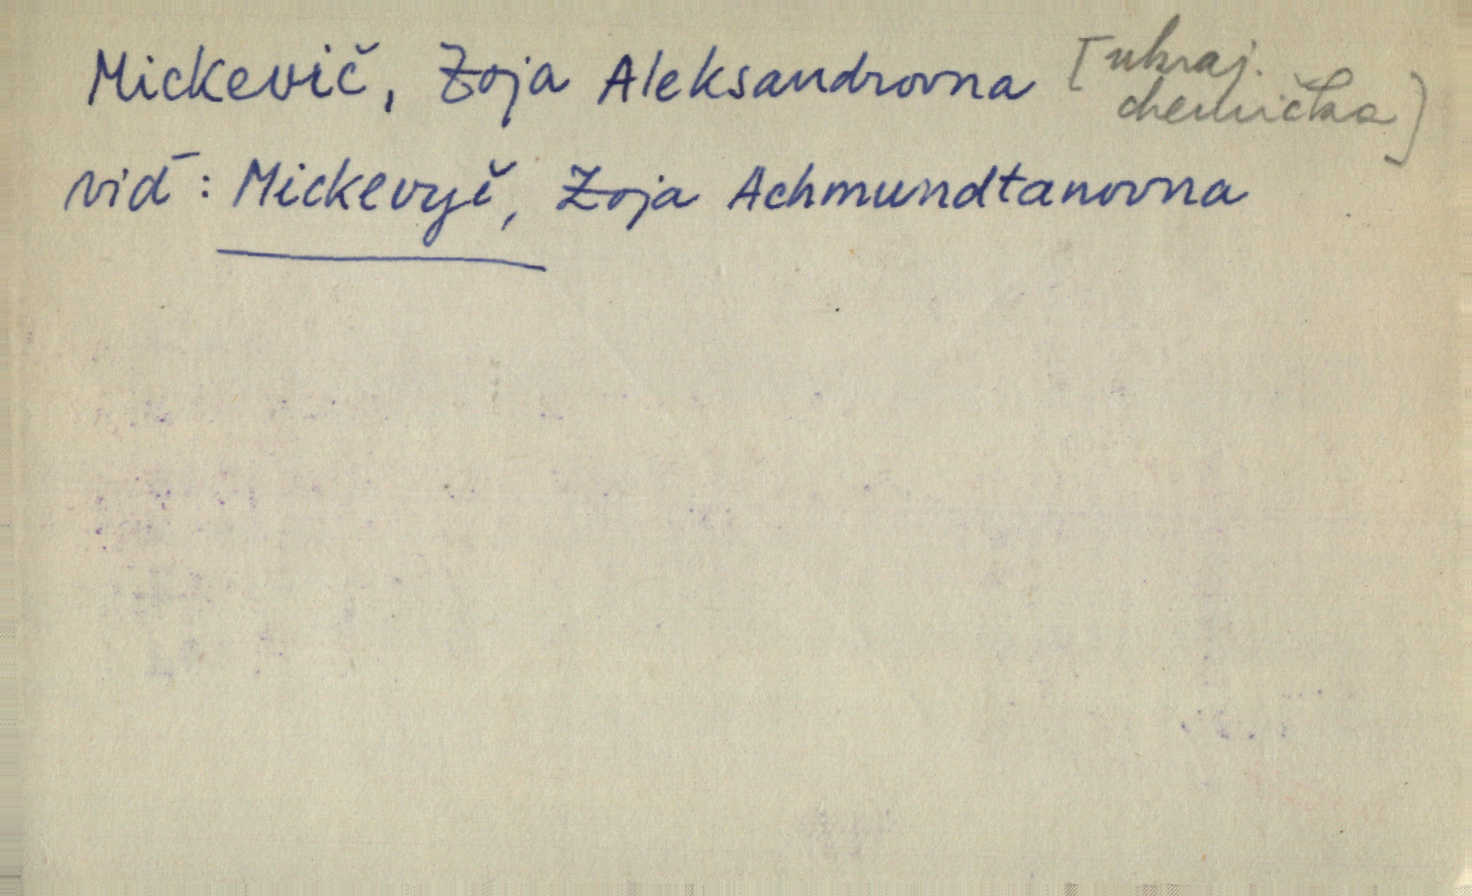 Mickevič, Zoja Aleksandrovna [ukraj. chemička]
viď: Mickevyč, Zoja Achmundtanovna